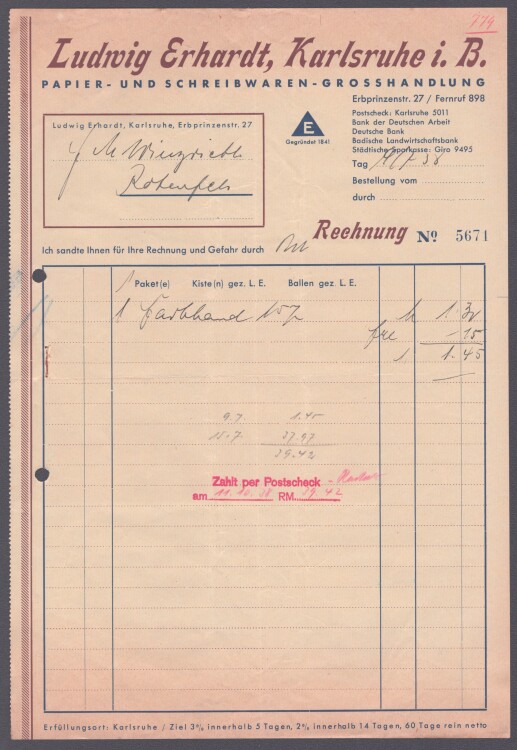 174
Ludwig Erhardt, Karlsruhe i. B.
PAPIER- UND SCHREIBWAREN-GROSSHANDLUNG
Erbprinzenstr. 27 / Fernruf 898
Postscheck: Karlsruhe 5011
Bank der Deutschen Arbeit
Deutsche Bank
Badische Landwirtschaftsbank
Städtische Sparkasse: Giro 9495
Ludwig Erhardt, Karlsruhe, Erbprinzenstr. 27
Rotenfels
E
Gegründet 1841
Tag
Bestellung vom
durch
Rechnung No 5671
Ich sandte Ihnen für Ihre Rechnung und Gefahr durch
1 Paket(e) Kiste(n) gez. L. E. Ballen gez. L. E.
1 Farbband 157 1.30
-15
1 1.45
9.7. 1.45
15.7. 37.97
39.42
Zahlt per Postscheck
am 11.10.38 RM. 39.42
Erfüllungsort: Karlsruhe / Ziel 3% innerhalb 5 Tagen, 2% innerhalb 14 Tagen, 60 Tage rein netto